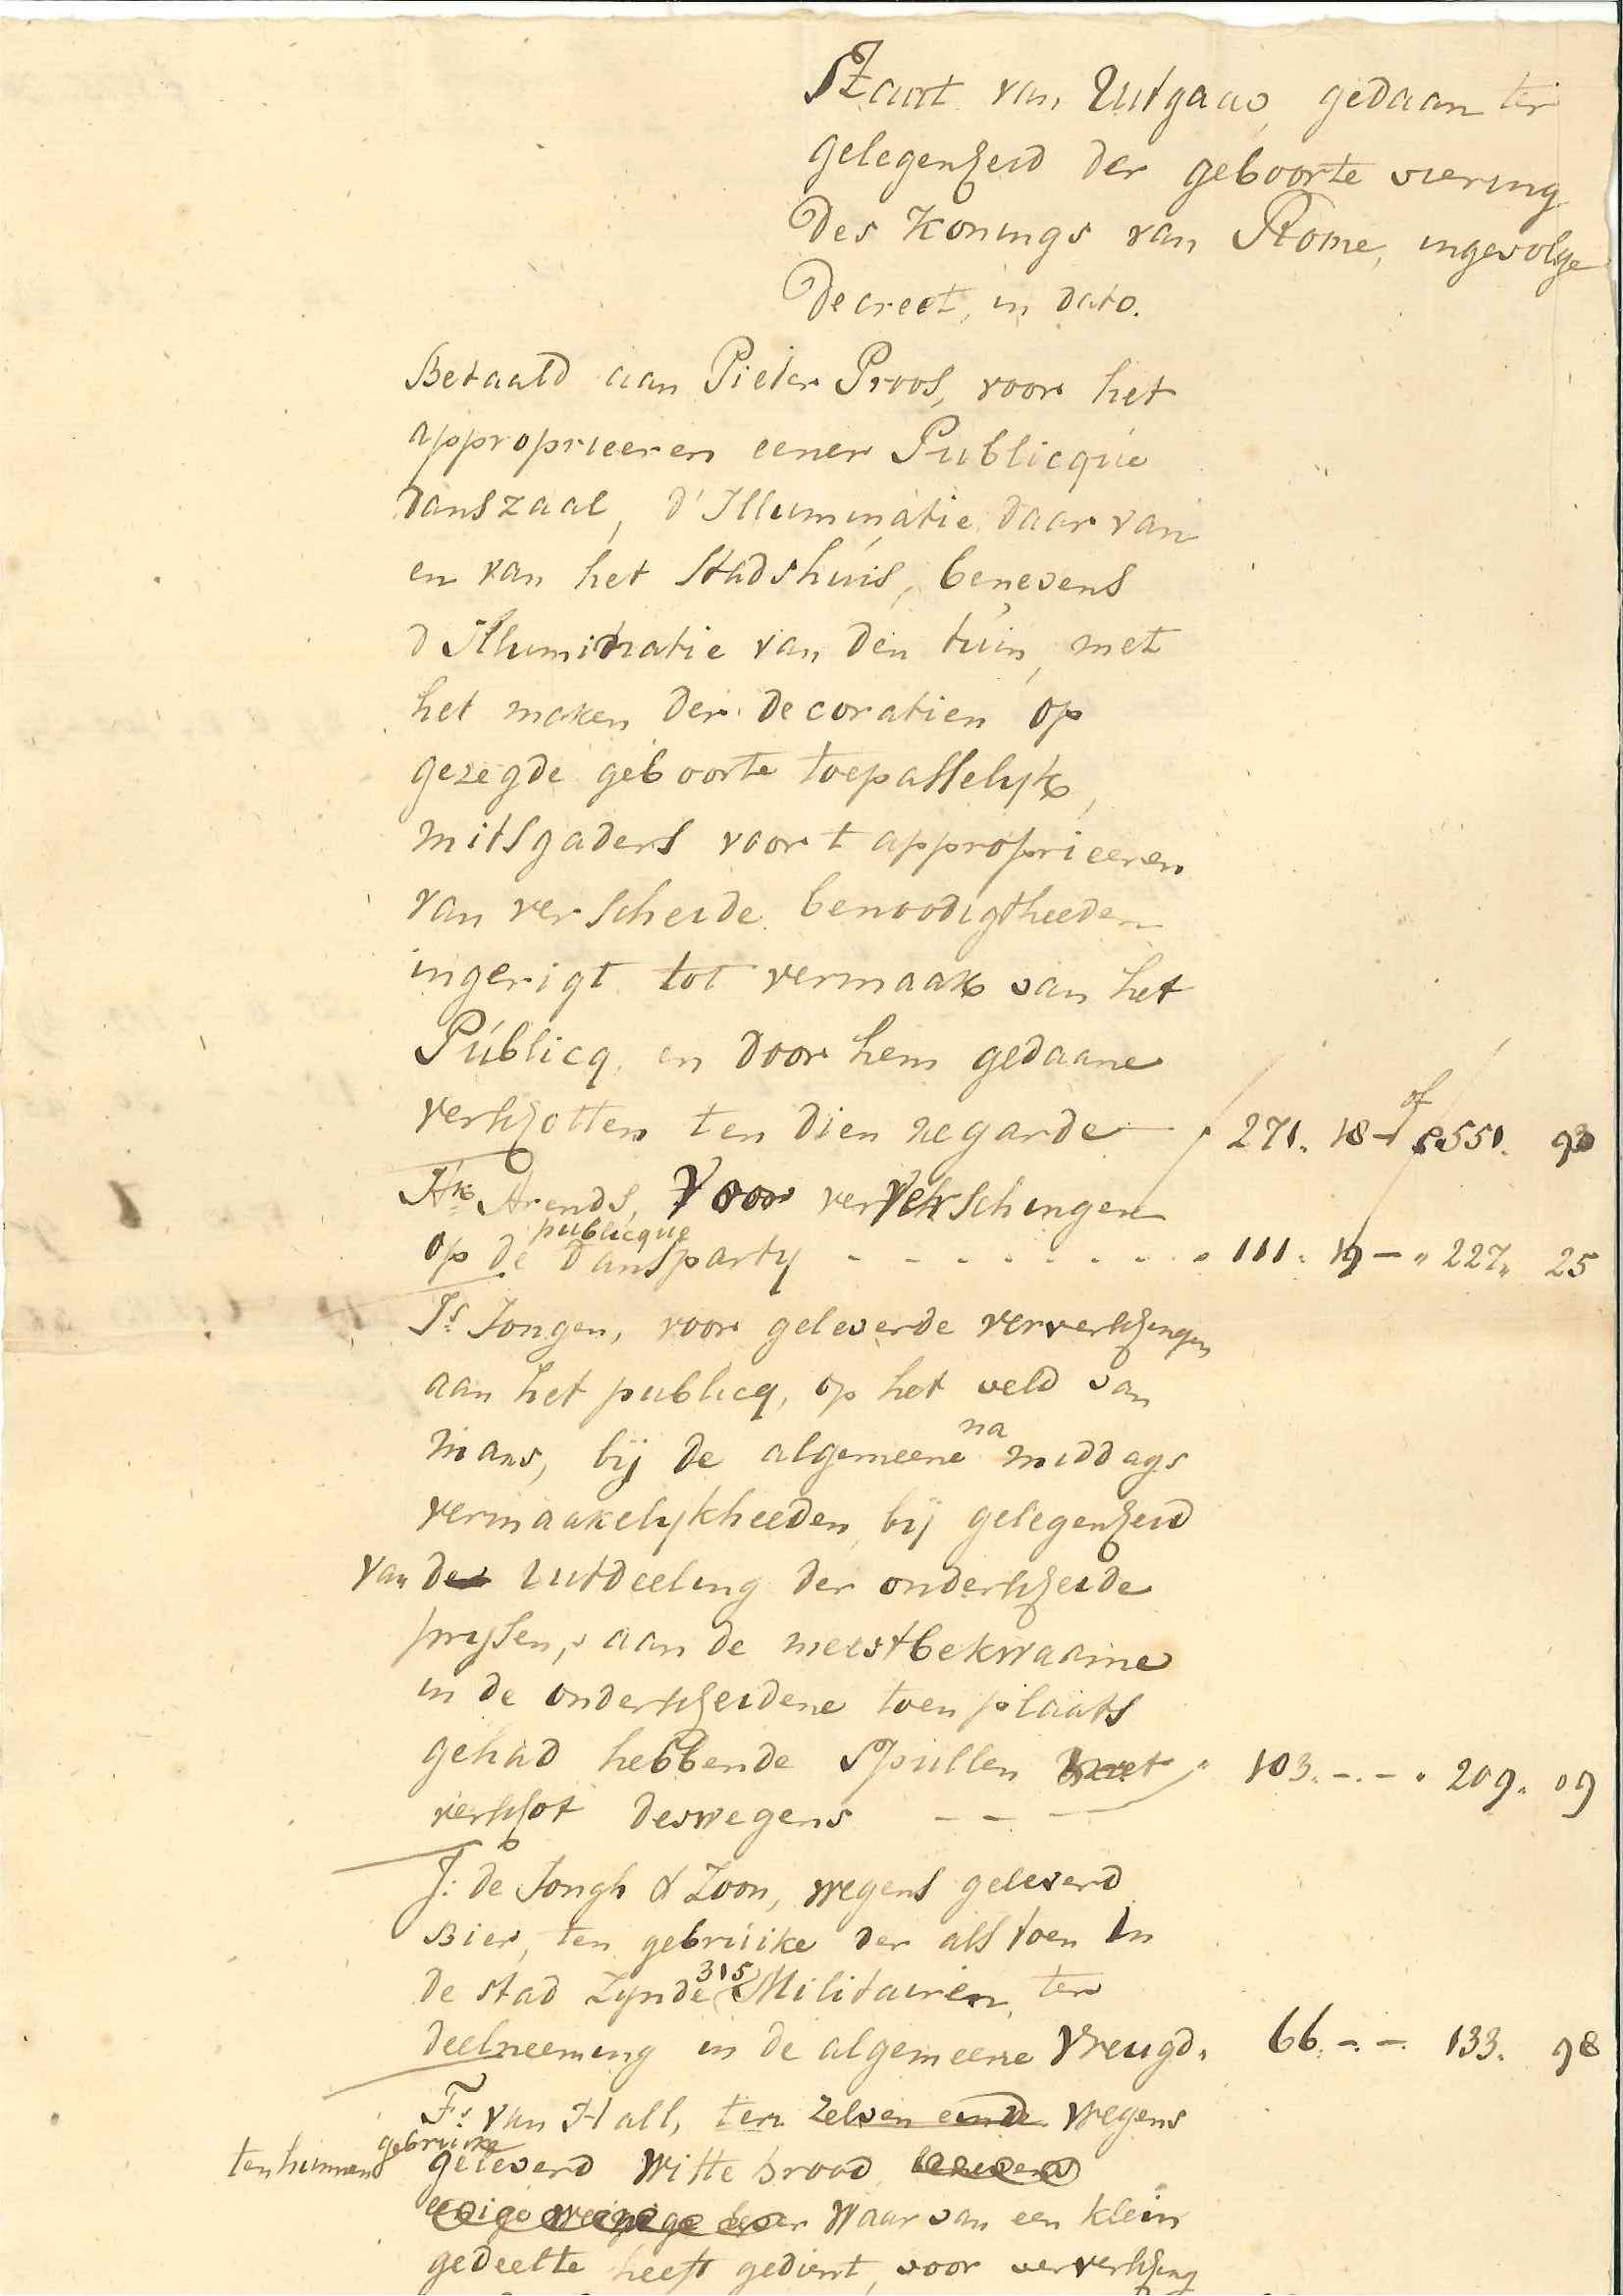 Staat van Uutgaav, gedaan ter
gelegenheid der geboorte viering
Des Konings van Rome, ingevolge
Decreet, in dato.
Betaald aan Pieter Proos, voor het
approprieeren eener Publicque
danszaal, d'Illuminatie daar van
en van het Stadshuis, benevens
d Illuminatie van den tuin, met
het maken der decoratien op
gezegde geboorte toepasselyk,
mitsgaders voor t approprieeren
van verscheide benoodigtheeden
ingerigt tot vermaak van het
Publicq, en door hem gedaane
verschotten ten dien regarde — ƒ 271. 18 – of ƒ 551. 90
Hk Arends, voor ververschingen
publicque
op de dansparty - - - - - - - - " 111. 19 – " 227. 25
Js. Jongen, voor geleverde ververschingen
aan het publicq, op het veld van
na
mars, bij de algemeene middags
vermaakelykheeden, bij gelegenheid
van de uutdeeling der onderscheide
prysen, aan de meestbekwaame
in de onderscheidene toen plaats
gehad hebbende Spullen " 103. -. - " 209. 09
verschot deswegens - - -
J: de Jongh & Zoon, wegens geleverd
Bier, ten gebruike der als toen in
315
de stad Zynde Militairen, ter
deelneeming in de algemeene vreugd. 66. -. -. 133. 98
Fs. van Hall, ten zelven einde wegens
gebruike
ten hunnen geleverd witte brood,
eenige weinige waar van een klein
gedeelte heeft gedient, voor ververschsing